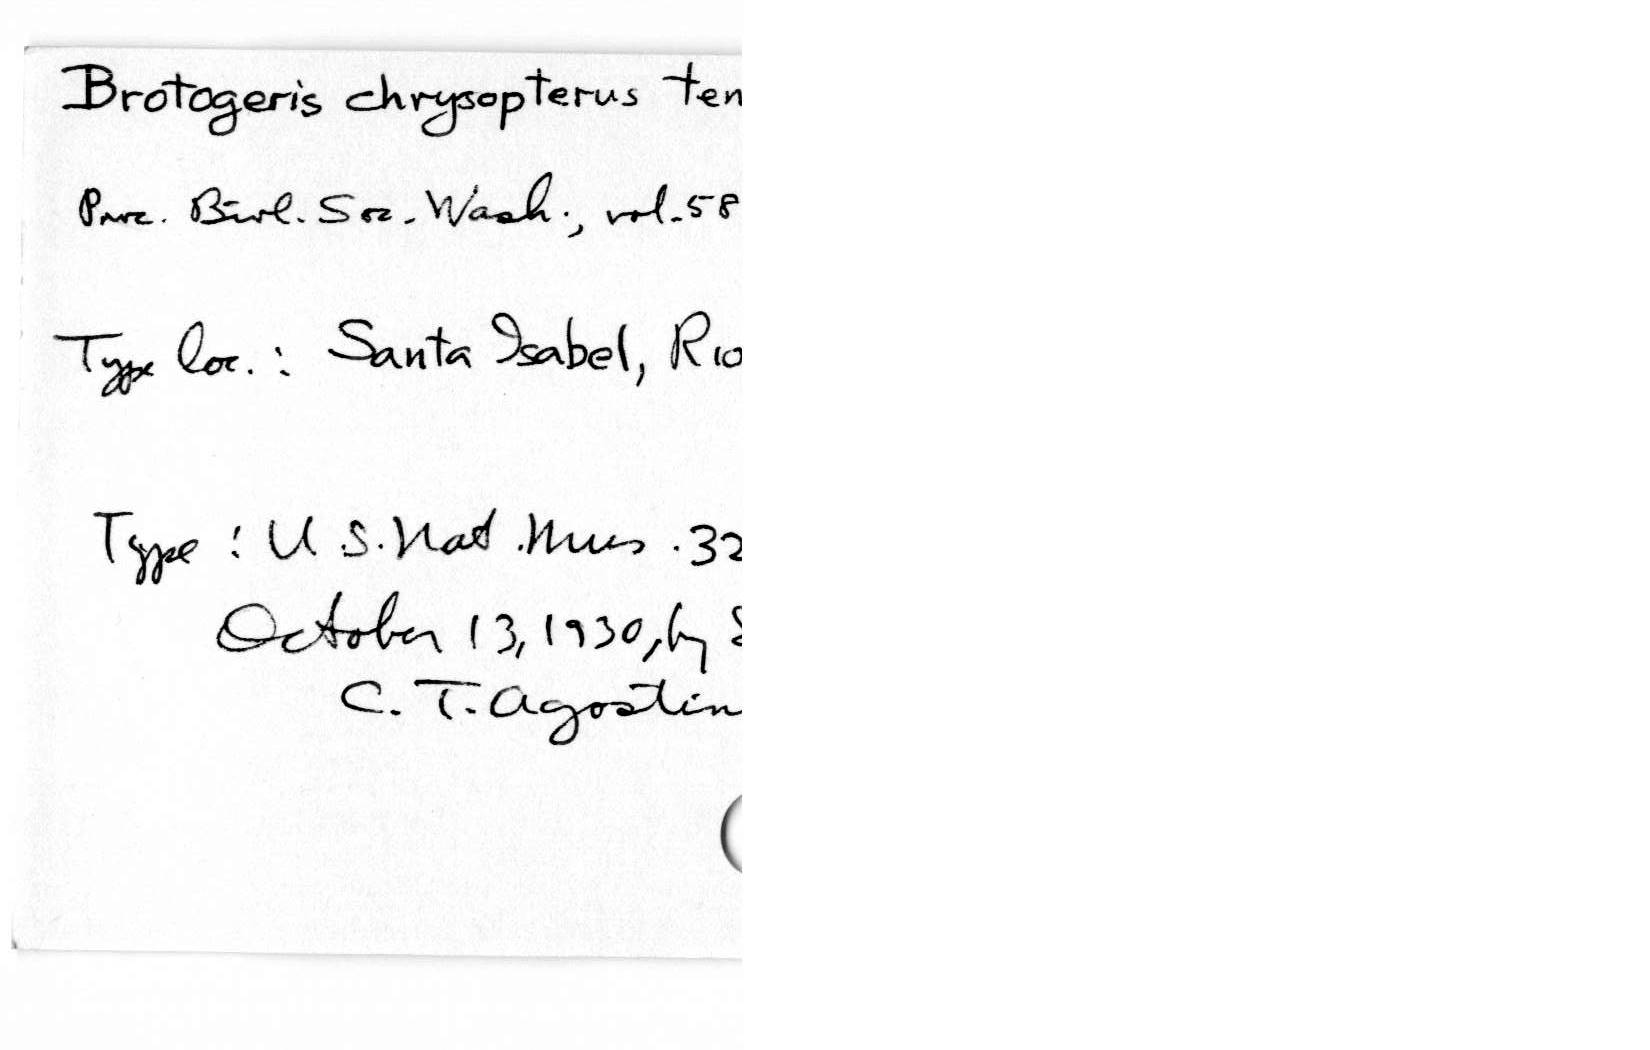 Brotogeris chrysopterus ten
Proc. Biol. Soc. Wash., vol. 58
Type loc.: Santa Isabel, Rio
Type: U.S. Nat. Mus. 32
October 13, 1930, by
C. T. Agostin